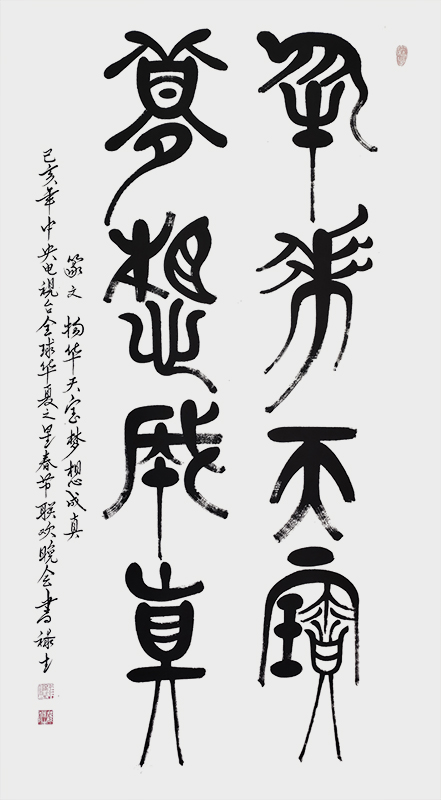 物華天寶
夢想成真
篆文 物华天宝梦想成真
己亥年中央电视台全球华夏之星春节联欢晚会书 禄